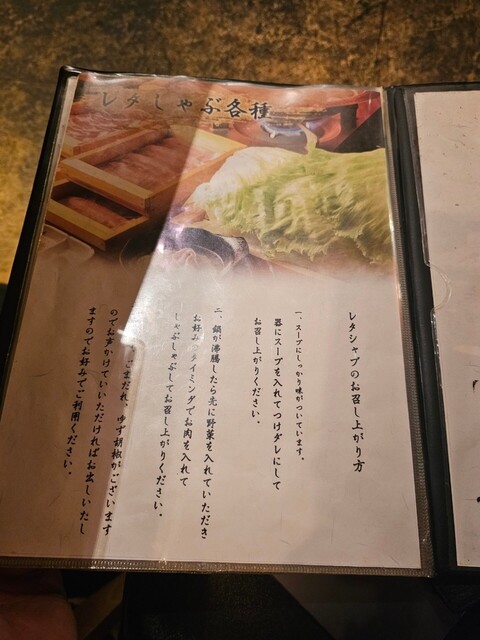 レタしゃぶ各種
レタシャブのお召し上がり方
一、スープにしっかり味がついています。
器にスープを入れてつけダレにして
お召し上がりください。
二、鍋が沸騰したら先に野菜を入れていただき
お好みのタイミングでお肉を入れて
しゃぶしゃぶしてお召し上がりください。
ごまだれ、ゆず胡椒がございます
のでお声かけていいただければお出しいたし
ますのでお好みでご利用ください。